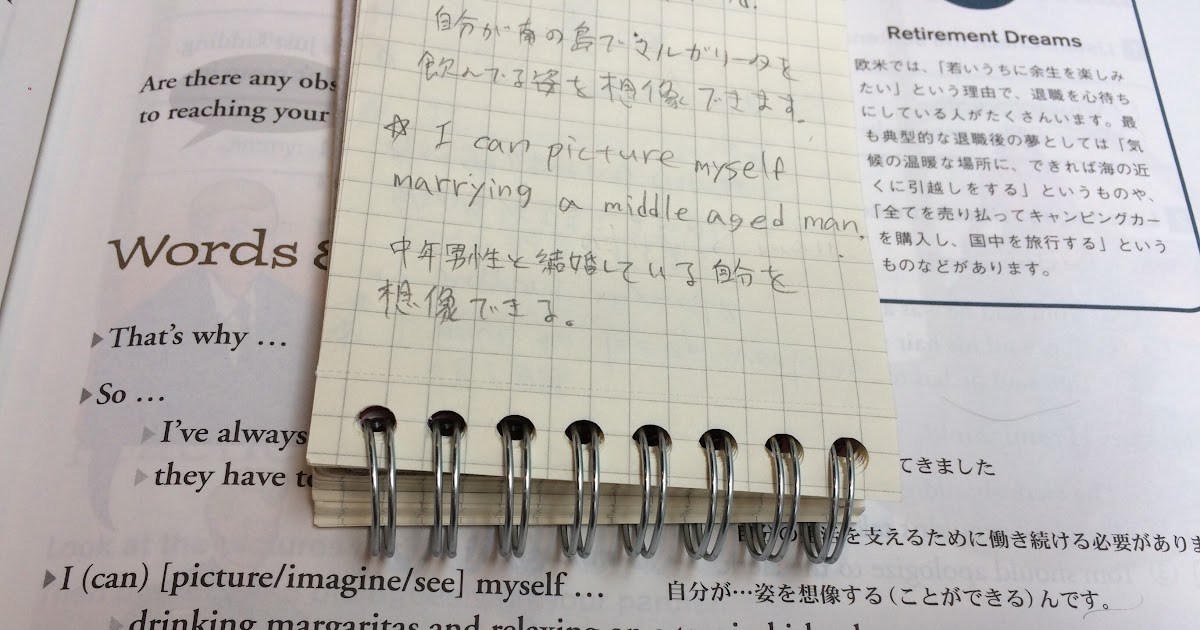 自分が南の島でマルガリータを
飲んでる姿を想像できます。
☆ I can picture myself
marrying a middle aged man.
中年男性と結婚している自分を
想像できる。
Are there any obs
to reaching your
Words &
▶That's why …
▶So …
▶I've always
▶they have to
▶I (can) [picture/imagine/see] myself …
▶drinking margaritas and relaxing on a tropical island
Retirement Dreams
欧米では、「若いうちに余生を楽しみ
たい」という理由で、退職を心待ち
にしている人がたくさんいます。最
も典型的な退職後の夢としては「気
候の温暖な場所に、できれば海の近
くに引越しをする」というものや、
「全てを売り払ってキャンピングカー
を購入し、国中を旅行する」という
ものなどがあります。
てきました
を支えるために働き続ける必要がありま
自分が…姿を想像する(ことができる)んです。